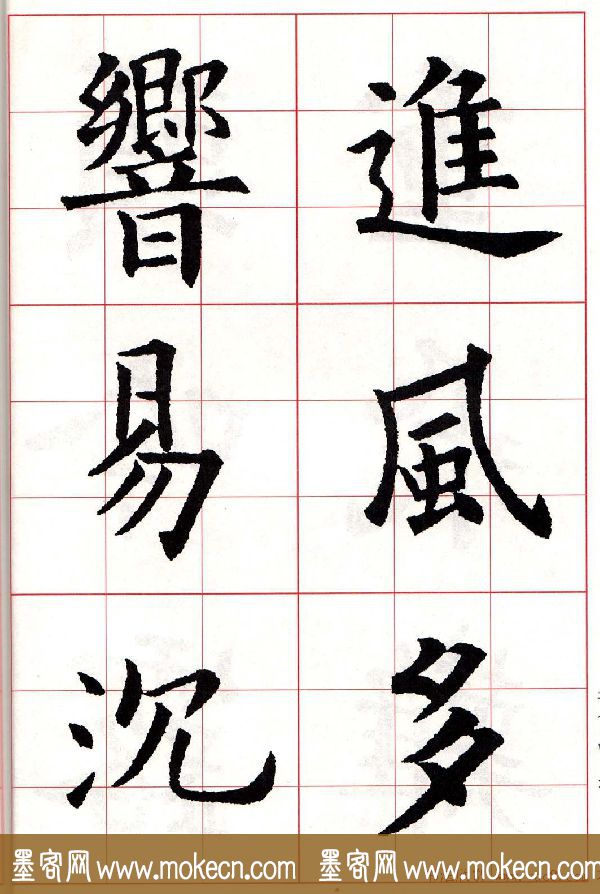 進風多
響易沉
墨客网 www.mokecn.com 墨客网 www.mokecn.com